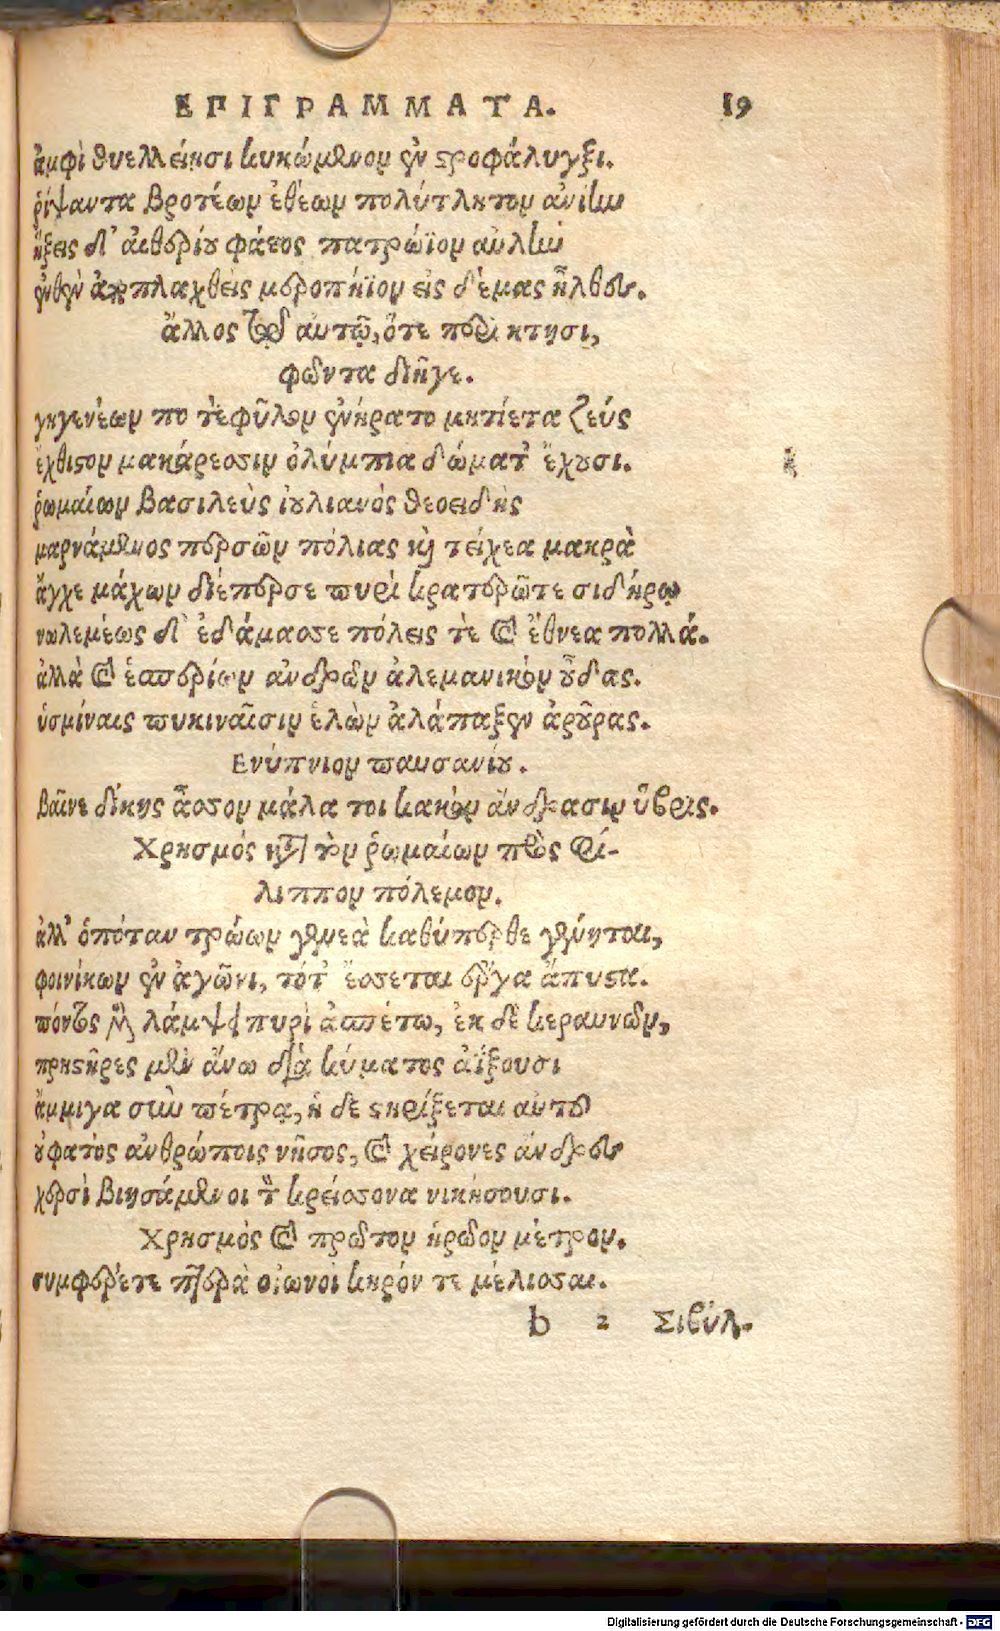 ΕΠΙΓΡΑΜΜΑΤΑ. 19
ἀμφὶ θυελλείῃσι κυκώμενον ἐν στροφάλιγξι.
ῥίψαντα βροτέων ἐθέων πολύτλητον ἀνίην
ἥξεις δ' αἰθερίου φάεος πατρώϊον αὐλὴν
ἔνθεν ἀποπλαχθεὶς μεροπήϊον εἰς δέμας ἦλθες.
ἄλλος τῷ αὐτῷ, ὅτε περὶ κτησι,
φῶντα διῆγε.
γηγενέων ποτὲ φῦλον ἐνήρατο μητίετα ζεύς
ἔχθιστον μακάρεσσιν ὀλύμπια δώματ' ἔχουσι.
ῥωμαίων βασιλεὺς ἰουλιανὸς θεοειδὴς
μαρνάμενος περσῶν πόλιας καὶ τείχεα μακρὰ
ἄγχε μάχων διέπερσε πυρὶ κρατερῷτε σιδήρῳ
νωλεμέως δ' ἐδάμασσε πόλεις τὲ καὶ ἔθνεα πολλά.
ἀλλὰ καὶ ἑσπερίων ἀνδρῶν ἀλεμανικὸν οὖδας.
ὑσμίναις πυκιναῖσιν ἑλὼν ἀλάπαξεν ἀρούρας.
Ενύπνιον παυσανίου.
βαῖνε δίκης ἆσσον μάλα τοι κακὸν ἄνδρασιν ὕβρις.
Χρησμός κατὰ τὸν ῥωμαίων πρὸς Φί-
λιππον πόλεμον.
ἀλλ' ὁπόταν τρώων γενεὰ καθύπερθε γένηται,
φοινίκων ἐν ἀγῶνι, τότ' ἔσσεται ἔργα ἄπυστα.
πόντος μὲν λάμψει πυρὶ ἀσπέτῳ, ἐκ δὲ κεραυνῶν,
πρηστῆρες μὲν ἄνω διὰ κύματος ἀΐξουσι
ἄμμιγα σὺν πέτρᾳ, ἡ δὲ στηρίξεται αὐτοῦ
οὐ φατὸς ἀνθρώποις νῆσος, καὶ χείρονες ἄνδρες
χερσὶ βιησάμενοι τὸν κρείσσονα νικήσουσι.
Χρησμὸς καὶ πρῶτον ἡρῶον μέτρον.
συμφέρετε πτερὰ οἰωνοὶ κηρόν τε μέλισσαι.
b 2 Σιβύλ.
Digitalisierung gefördert durch die Deutsche Forschungsgemeinschaft - DFG